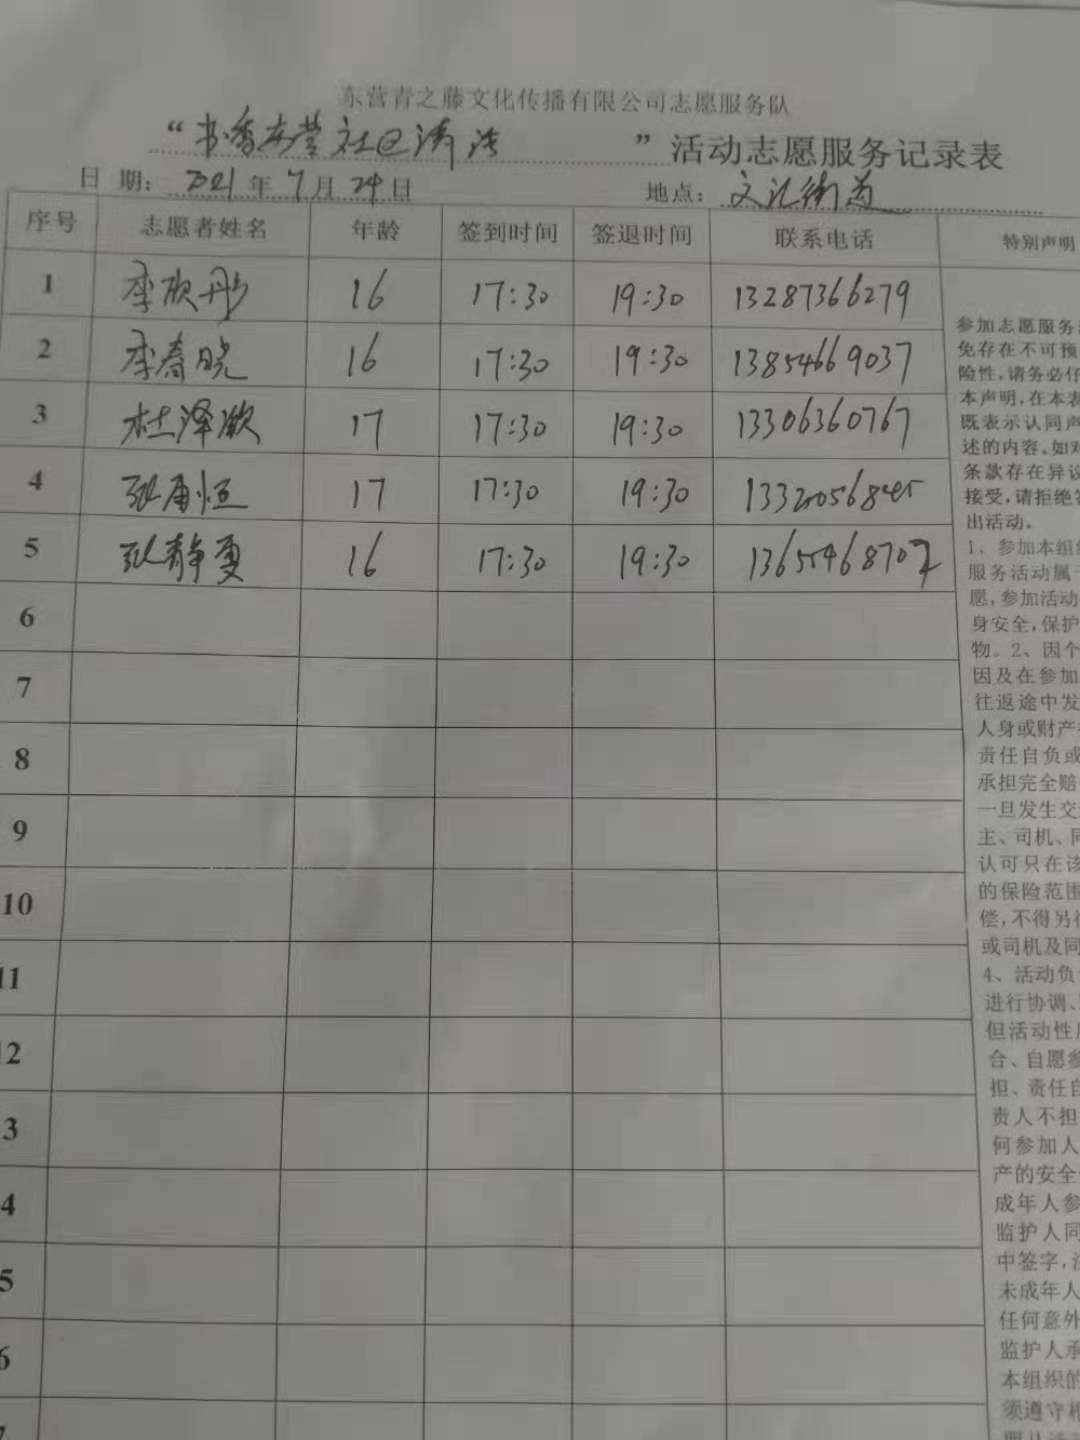 东营青之藤文化传播有限公司志愿服务队
“书香东营社区清洁”活动志愿服务记录表
日 期: 2021年7月24日 地点: 文汇街道
序号 志愿者姓名 年龄 签到时间 签退时间 联系电话 特别声明
1 李欣彤 16 17:30 19:30 13287366279
2 李春晓 16 17:30 19:30 13854669037
3 杜泽欣 17 17:30 19:30 13306360767
4 张甫恒 17 17:30 19:30
5 张静雯 16 17:30 19:30
6
7
8
9
10
11
12
3
4
5
6
参加志愿服务
免存在不可预
险性,请务必仔
本声明,在本表
既表示认同声
述的内容。如对
条款存在异议
接受,请拒绝签
出活动。
1、参加本组织
服务活动属于
愿,参加活动
身安全,保护
物。2、因个
因及在参加
往返途中发
人身或财产
责任自负或
承担完全赔
一旦发生交
主、司机、同
认可只在该
的保险范围
偿,不得另行
或司机及同
4、活动负
进行协调、
但活动性质
合、自愿参
担、责任自
责人不担
何参加人
产的安全
成年人参
监护人同
中签字,注
未成年人
任何意外
监护人承
本组织的
须遵守相